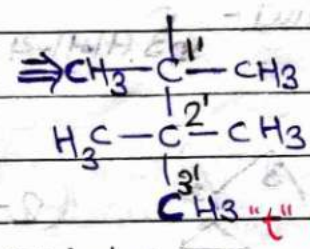 ⇛CH3—C1'—CH3
H3C—C2'—CH3
3'
CH3 "t"